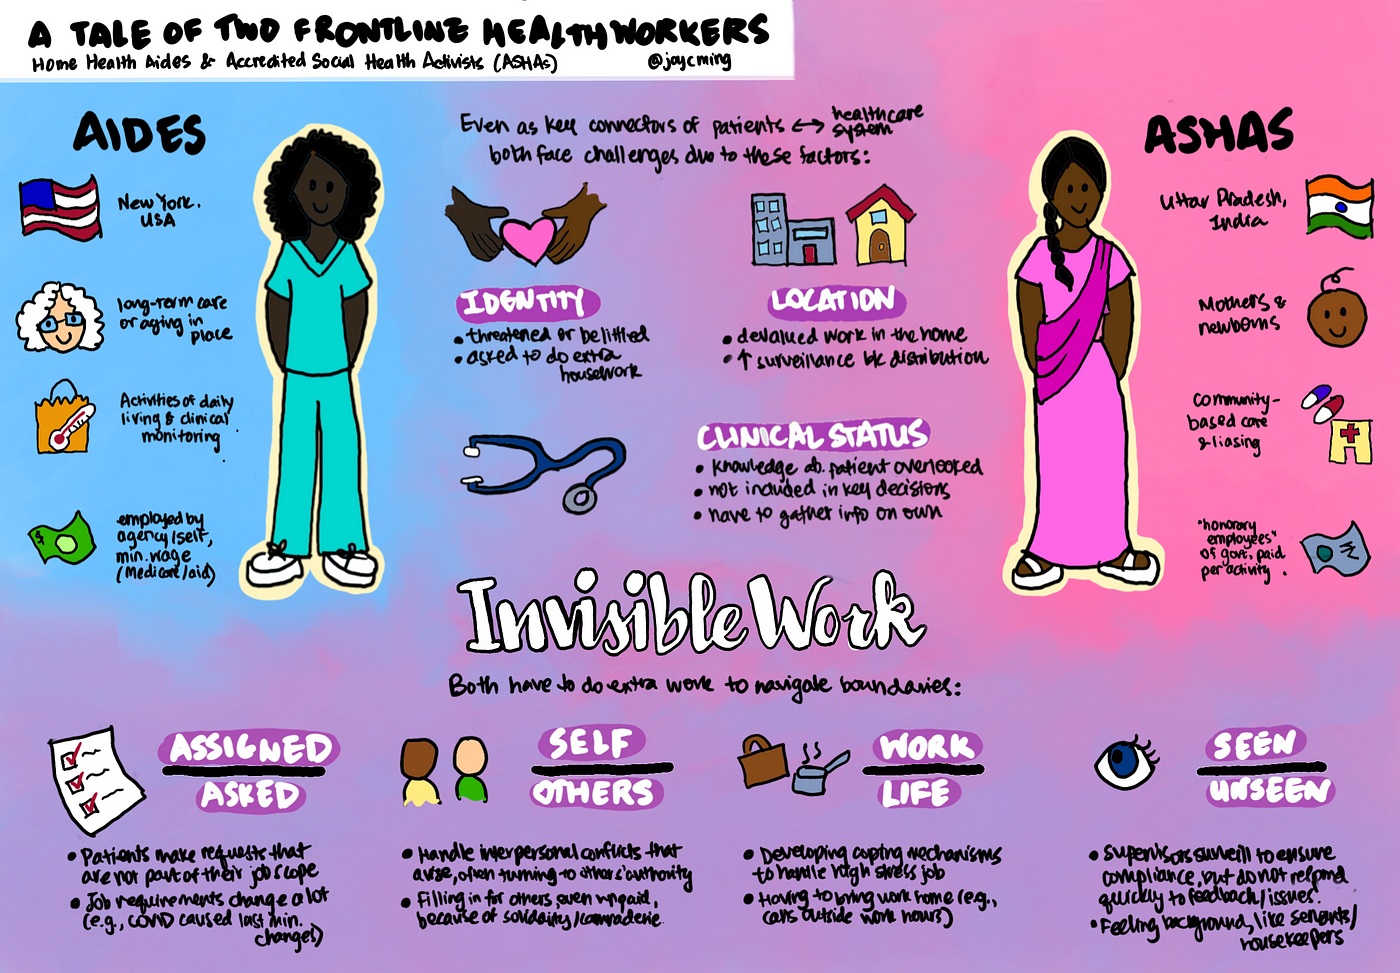 A TALE OF TWO FRONTLINE HEALTHWORKERS
Home Health Aides & Accredited Social Health Activists (ASHAs)
@jaycming
AIDES
New York,
USA
long-term care
or aging in
place
Activities of daily
living & clinical
monitoring
employed by
agency/self,
min. wage
(Medicare/aid)
Even as key connectors of patients ↔ healthcare
system
both face challenges due to these factors:
IDENTITY
• threatened or belittled
• asked to do extra
housework
LOCATION
• devalued work in the home
• ↑ surveillance b/c distribution
CLINICAL STATUS
• knowledge ab. patient overlooked
• not included in key decisions
• have to gather info on own
ASHAS
Uttar Pradesh,
India
Mothers &
newborns
Community-
based care
& liasing
"honorary
employees"
of govt. paid
per activity.
Invisible Work
Both have to do extra work to navigate boundaries:
ASSIGNED
ASKED
• Patients make requests that
are not part of their job scope
• Job requirements change a lot
(e.g., COVID caused last min.
changes)
SELF
OTHERS
• Handle interpersonal conflicts that
arise, often turning to others' authority
• Filling in for others, even unpaid,
because of solidarity/camraderie
WORK
LIFE
• Developing coping mechanisms
to handle high stress job
• Having to bring work home (e.g.,
calls outside work hours)
SEEN
UNSEEN
• Supervisors surveill to ensure
compliance, but do not respond
quickly to feedback/issues.
• Feeling background, like servants/
housekeepers